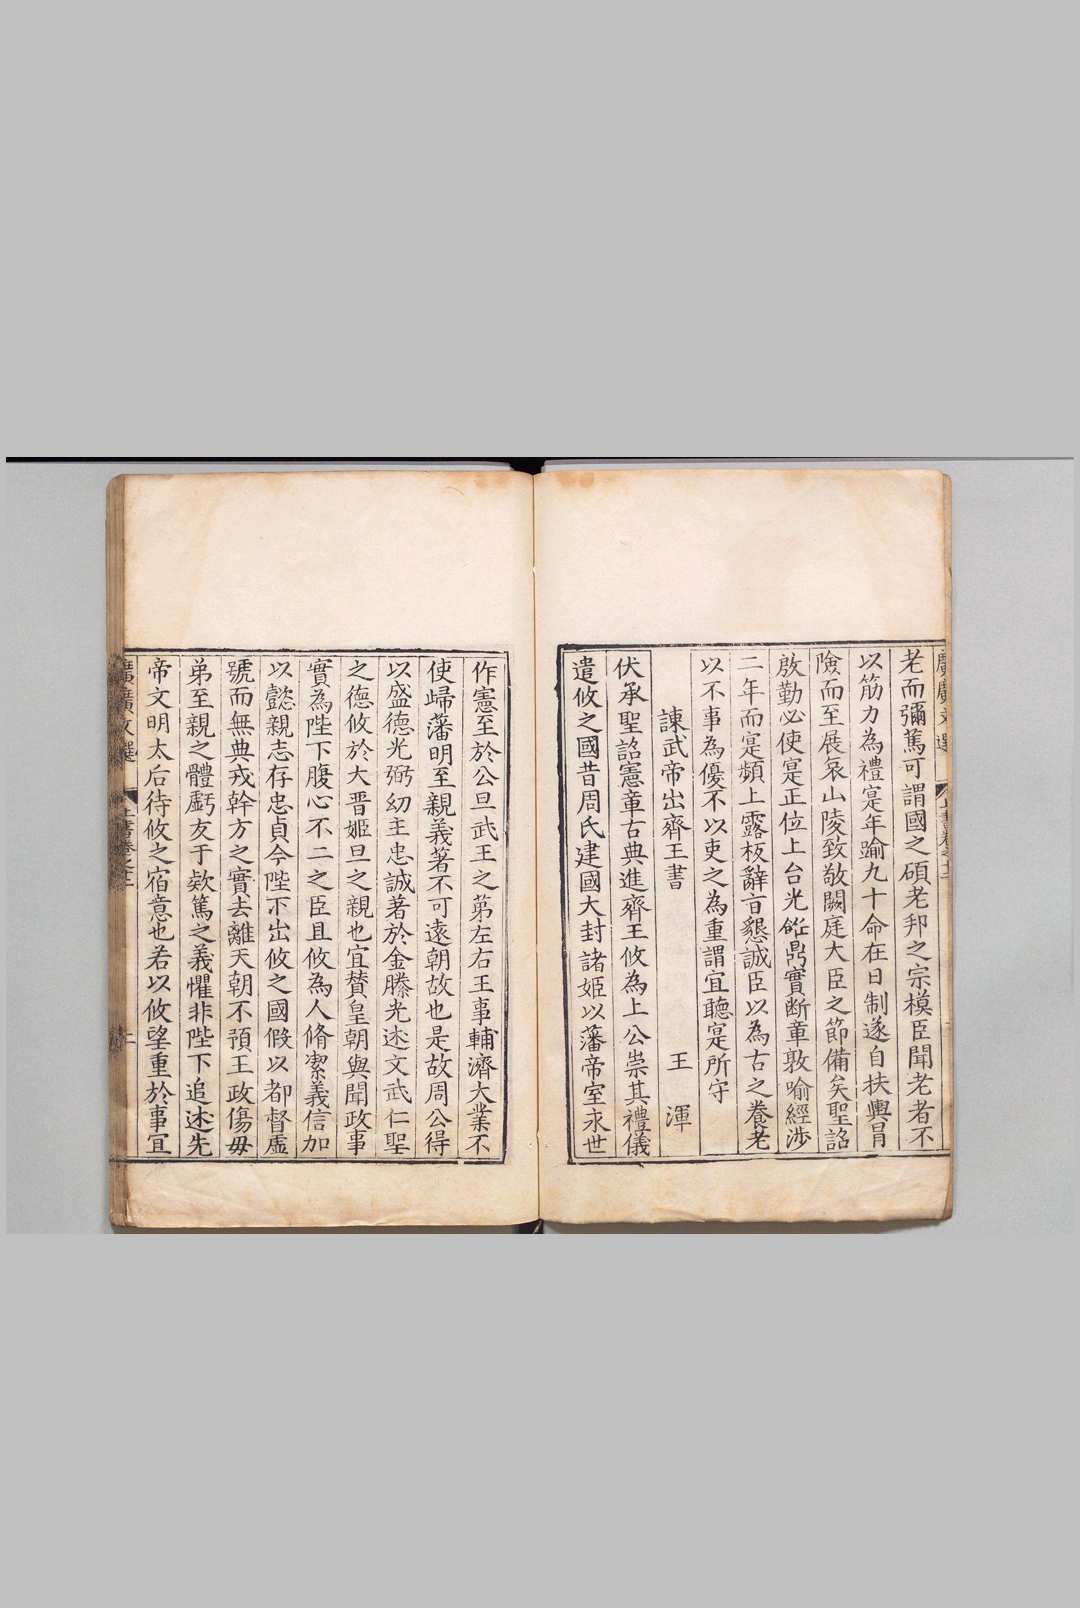 老而彌篤可謂國之碩老邦之宗模臣聞老者不
以筋力為禮寔年踰九十命在日制遂自扶輿冐
險而至展哀山陵致敬闕庭大臣之節備矣聖詔
啟勤必使寔正位上台光飪鼎實斷章敦喻經涉
二年而寔頻上露板辭㫖懇誠臣以為古之養老
以不事為優不以吏之為重謂宜聽寔所守
諫武帝出齊王書
王渾
伏承聖詔憲章古典進齊王攸為上公崇其禮儀
遣攸之國昔周氏建國大封諸姬以藩帝室永世
作憲至於公旦武王之苐左右王事輔濟大業不
使歸藩明至親義著不可遠朝故也是故周公得
以盛德光弼㓜主忠誠著於金縢光述文武仁聖
之德攸於大晋姬旦之親也宜賛皇朝與聞政事
實為陛下腹心不二之臣且攸為人脩潔義信加
以懿親志存忠貞今陛下出攸之國假以都督虛
號而無典戎幹方之實去離天朝不預王政傷毋
弟至親之體虧友于欵篤之義懼非陛下追述先
帝文明太后待攸之宿意也若以攸望重於事冝
廣廣文選
上書卷之十二
二